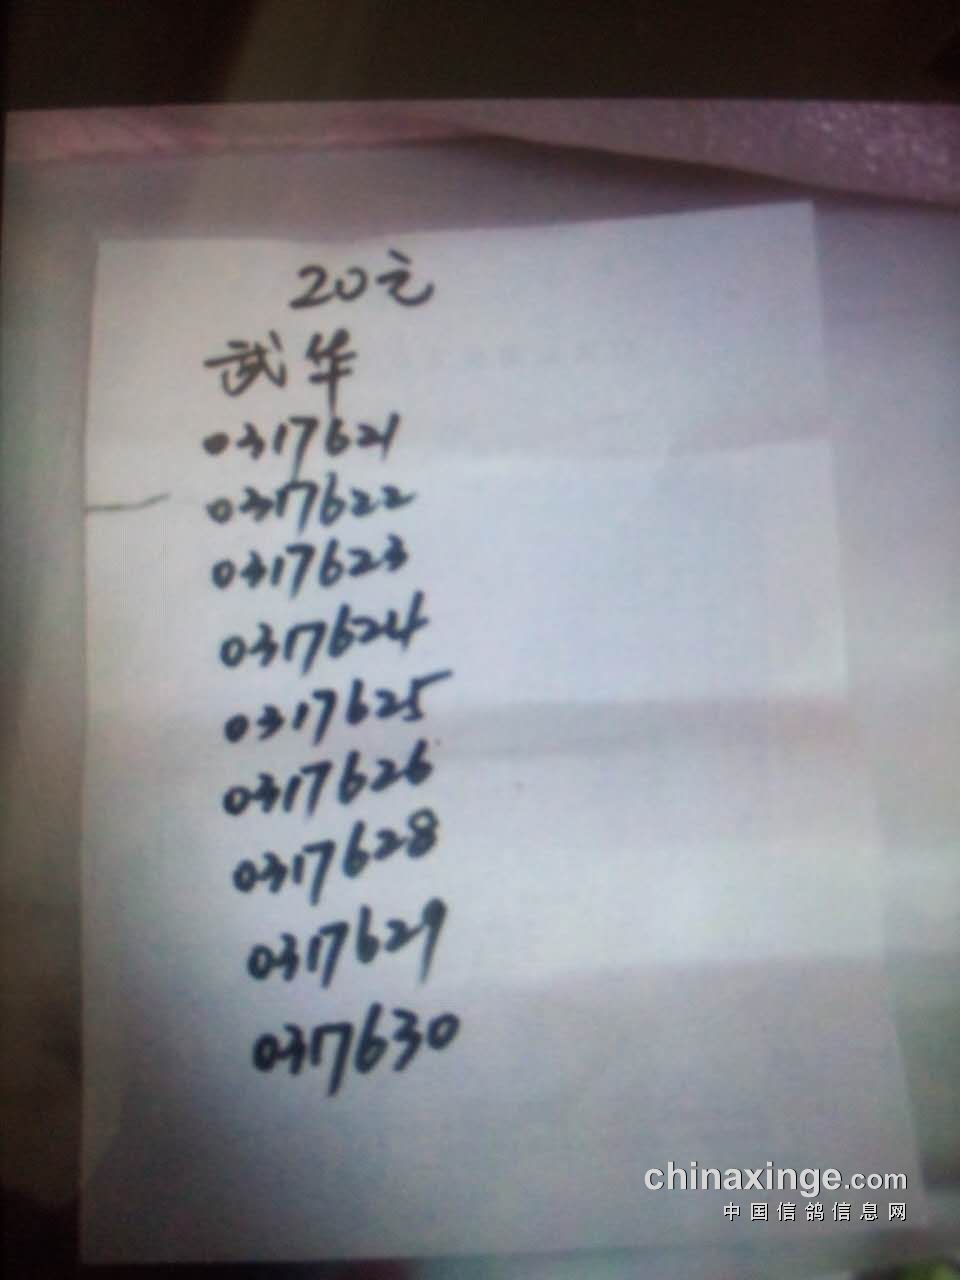 20元
武华
0317621
0317622
0317623
0317624
0317625
0317626
0317628
0317629
0317630
chinaxinge.com
中国信鸽信息网